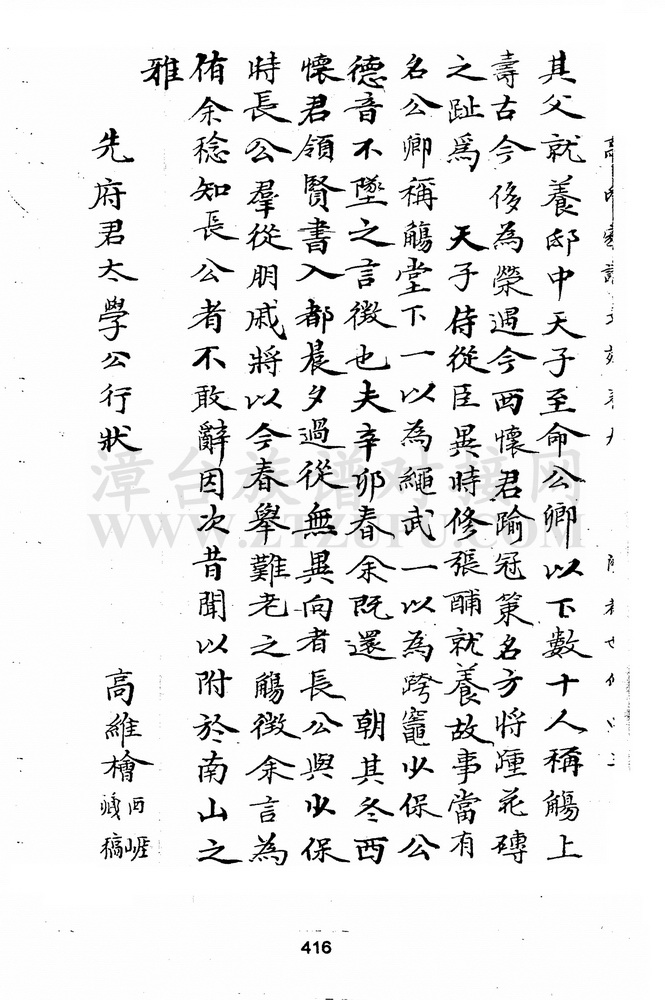 其父就養邸中天子至命公卿以下數十人稱觴上
壽古今侈為榮遇今西懷君踰冠策名方將踵花磚
之趾爲　天子侍從臣異時修張酺就養故事當有
名公卿稱觴堂下一以為繩武一以為跨竈少保公
德音不墜之言徵也夫辛卯春余既還　朝其冬西
懷君領賢書入都晨夕過從無異向者長公與少保
時長公羣從朋戚將以今春舉難老之觴徵余言為
侑余稔知長公者不敢辭因次昔聞以附於南山之
雅
先府君太學公行狀
高維檜 西崕藏稿
漳台族谱对接网
WWW.ZTZUPU.COM
416